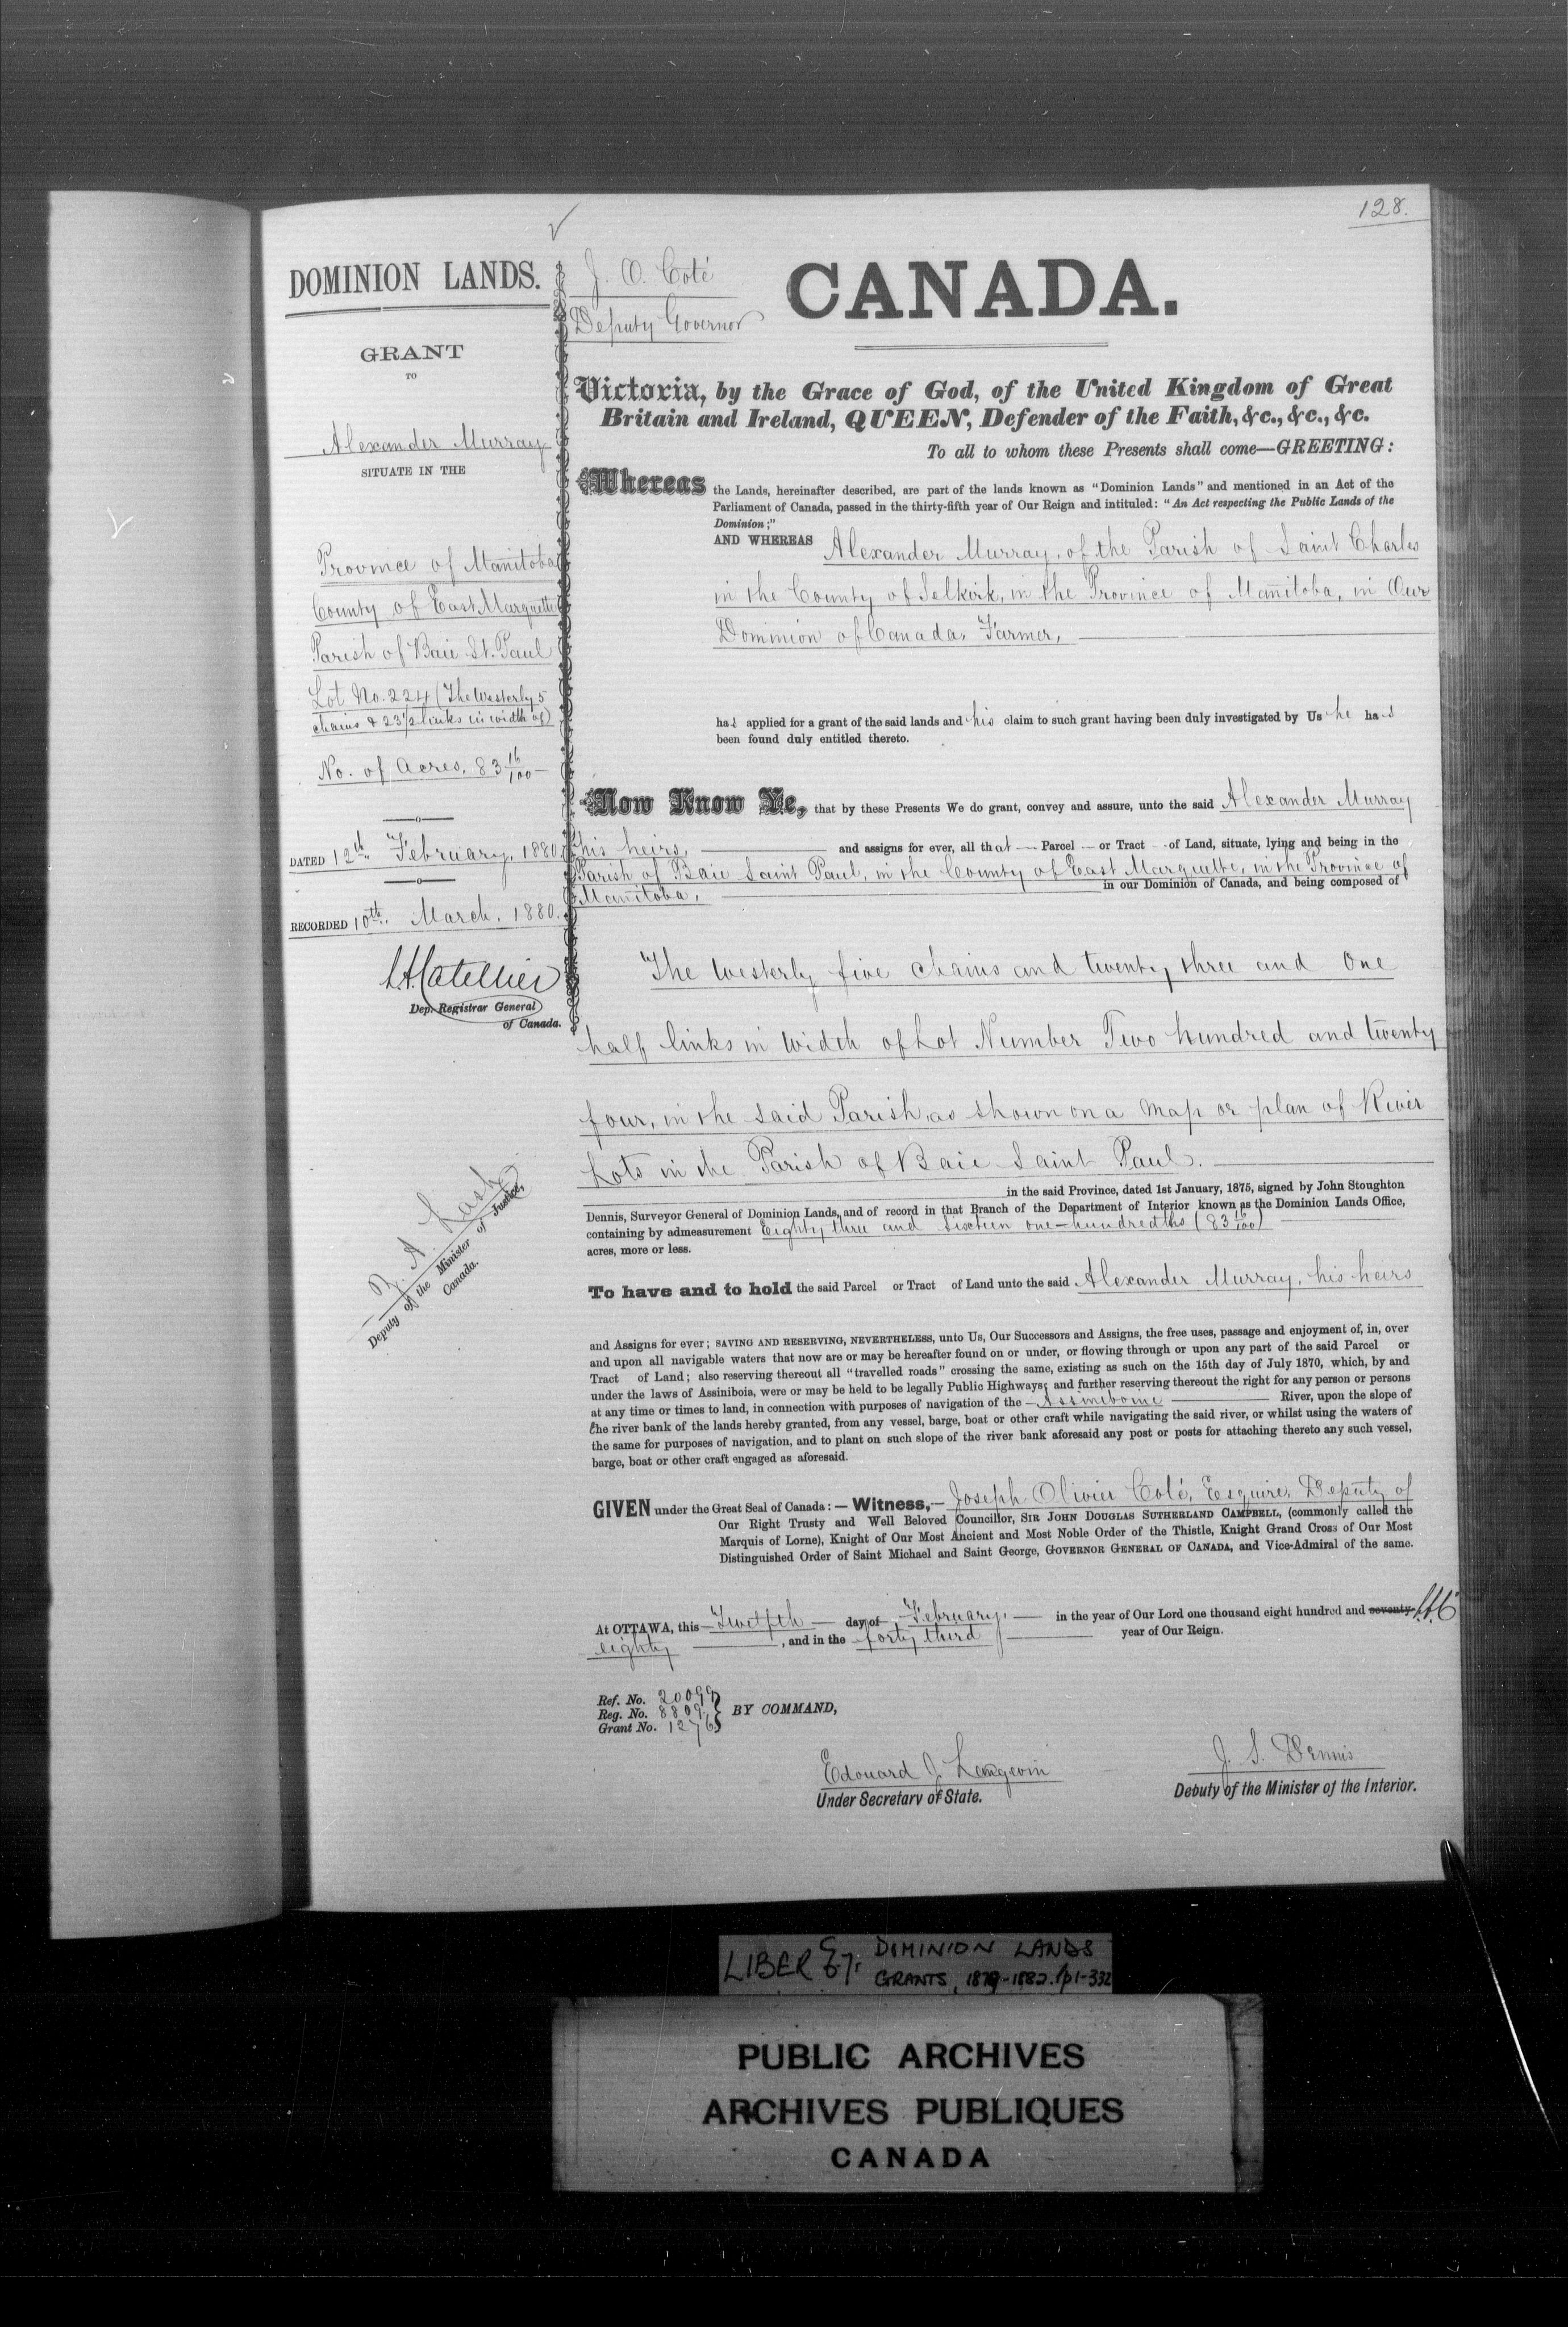 128.
DOMINION LANDS.
GRANT
TO
Alexander Murray
SITUATE IN THE
Province of Manitoba
County of East Marquette
Parish of Baie St. Paul
Lot No. 224 (The Westerly 5
chains & 23½ links in width of)
No. of Acres, 83 16/100
DATED 12th February, 1880.
RECORDED 10th March, 1880.
Dep. Registrar General
of Canada.
Z. A. Lash
Deputy of the Minister of Justice,
Canada.
J. O. Coté
Deputy Governor
CANADA.
Victoria, by the Grace of God, of the United Kingdom of Great
Britain and Ireland, QUEEN, Defender of the Faith, &c., &c., &c.
To all to whom these Presents shall come—GREETING:
Whereas the Lands, hereinafter described, are part of the lands known as "Dominion Lands" and mentioned in an Act of the
Parliament of Canada, passed in the thirty-fifth year of Our Reign and intituled: "An Act respecting the Public Lands of the
Dominion;"
AND WHEREAS Alexander Murray, of the Parish of Saint Charles
in the County of Selkirk, in the Province of Manitoba, in Our
Dominion of Canada, Farmer,
has applied for a grant of the said lands and his claim to such grant having been duly investigated by Us he has
been found duly entitled thereto.
Now Know Ye, that by these Presents We do grant, convey and assure, unto the said Alexander Murray
his heirs, and assigns for ever, all that Parcel or Tract of Land, situate, lying and being in the
Parish of Baie Saint Paul, in the County of East Marquette, in the Province of
Manitoba, in our Dominion of Canada, and being composed of
The Westerly five chains and twenty three and one
half links in width of Lot Number Two hundred and twenty
four, in the said Parish, as shown on a map or plan of River
Lots in the Parish of Baie Saint Paul.
in the said Province, dated 1st January, 1875, signed by John Stoughton
Dennis, Surveyor General of Dominion Lands, and of record in that Branch of the Department of Interior known as the Dominion Lands Office,
containing by admeasurement Eighty three and sixteen one-hundredths (83 16/100)
acres, more or less.
To have and to hold the said Parcel or Tract of Land unto the said Alexander Murray, his heirs
and Assigns for ever; SAVING AND RESERVING, NEVERTHELESS, unto Us, Our Successors and Assigns, the free uses, passage and enjoyment of, in, over
and upon all navigable waters that now are or may be hereafter found on or under, or flowing through or upon any part of the said Parcel or
Tract of Land; also reserving thereout all "travelled roads" crossing the same, existing as such on the 15th day of July 1870, which, by and
under the laws of Assiniboia, were or may be held to be legally Public Highways; and further reserving thereout the right for any person or persons
at any time or times to land, in connection with purposes of navigation of the Assiniboine River, upon the slope of
the river bank of the lands hereby granted, from any vessel, barge, boat or other craft while navigating the said river, or whilst using the waters of
the same for purposes of navigation, and to plant on such slope of the river bank aforesaid any post or posts for attaching thereto any such vessel,
barge, boat or other craft engaged as aforesaid.
GIVEN under the Great Seal of Canada:—Witness,—Joseph Olivier Coté, Esquire, Deputy of
Our Right Trusty and Well Beloved Councillor, SIR JOHN DOUGLAS SUTHERLAND CAMPBELL, (commonly called the
Marquis of Lorne), Knight of Our Most Ancient and Most Noble Order of the Thistle, Knight Grand Cross of Our Most
Distinguished Order of Saint Michael and Saint George, GOVERNOR GENERAL OF CANADA, and Vice-Admiral of the same.
At OTTAWA, this Twelfth day of February, in the year of Our Lord one thousand eight hundred and seventy
eighty, and in the forty third year of Our Reign.
Ref. No. 20099
Reg. No. 8809
Grant No. 1276
BY COMMAND,
Edouard J. Langevin
Under Secretary of State.
J. S. Dennis
Deputy of the Minister of the Interior.
LIBER DOMINION LANDS
GRANTS, 1879-1882. pp1-332
PUBLIC ARCHIVES
ARCHIVES PUBLIQUES
CANADA